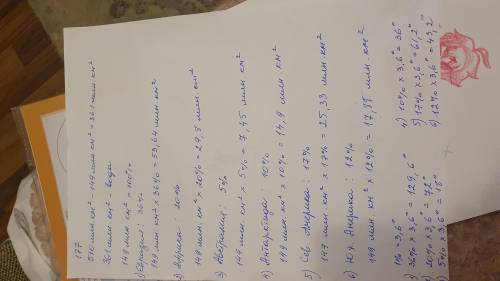 177
510 млн км² - 149 млн км² = 361 млн км²
361 млн км² - вода
149 млн км² = 100%
1) Евразия: 36%
149 млн км² × 36% = 53,64 млн км²
2) Африка: 20%
149 млн. км² × 20% = 29,8 млн. км²
3) Австралия: 5%
149 млн км² × 5% = 7,45 млн. км²
4) Антарктида: 10%
149 млн км² × 10% = 14,9 млн. км²
5) Сев. Америка: 17%
149 млн. км² × 17% = 25,33 млн. км²
6) Юж. Америка: 12%
149 млн. км² × 12% = 17,88 млн. км²
1% = 3,6°
1) 36% × 3,6° = 129,6°
2) 20% × 3,6° = 72°
3) 5% × 3,6° = 18°
4) 10% × 3,6° = 36°
5) 17% × 3,6° = 61,2°
6) 12% × 3,6° = 43,2°